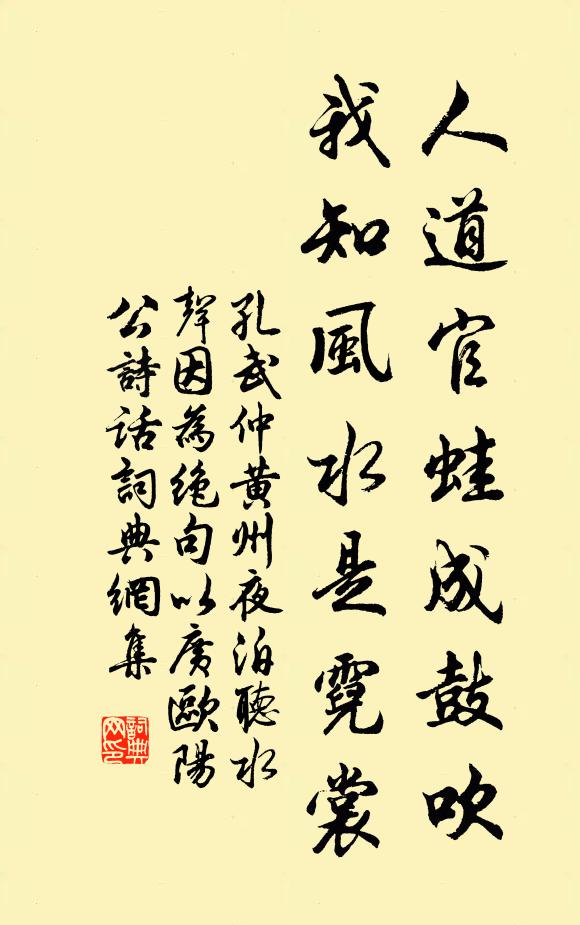 人道官蛙成鼓吹
我知風水是霓裳
孔武仲黃州夜泊聽水
聲因為絶句以廣歐陽
公詩話詞典網集
詞典
网印